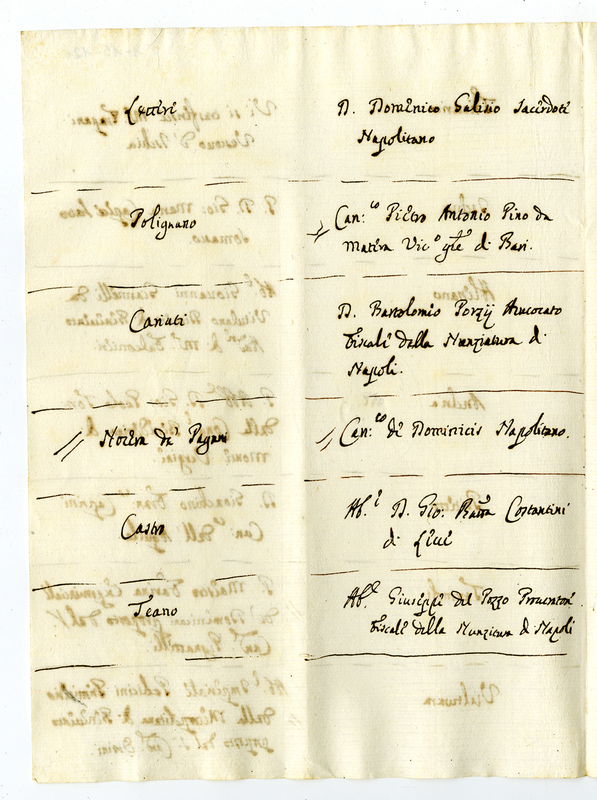 Lettere
D. Domenico Galisio Sacerdote
Napolitano
Polignano
Can:co Pietro Antonio Pino da
Matera Vico gnle di Bari.
Cariati
D. Bartolomeo Porzij Avvocato
fiscale della Nunziatura di
Napoli.
Nocera de' Pagani
Can:co de Dominicis Napolitano.
Castro
Ab.e D. Gio: Batta Costantini
di Lecce
Teano
Ab.e Giuseppe del Pozzo Promotore
fiscale della Nunziatura di Napoli